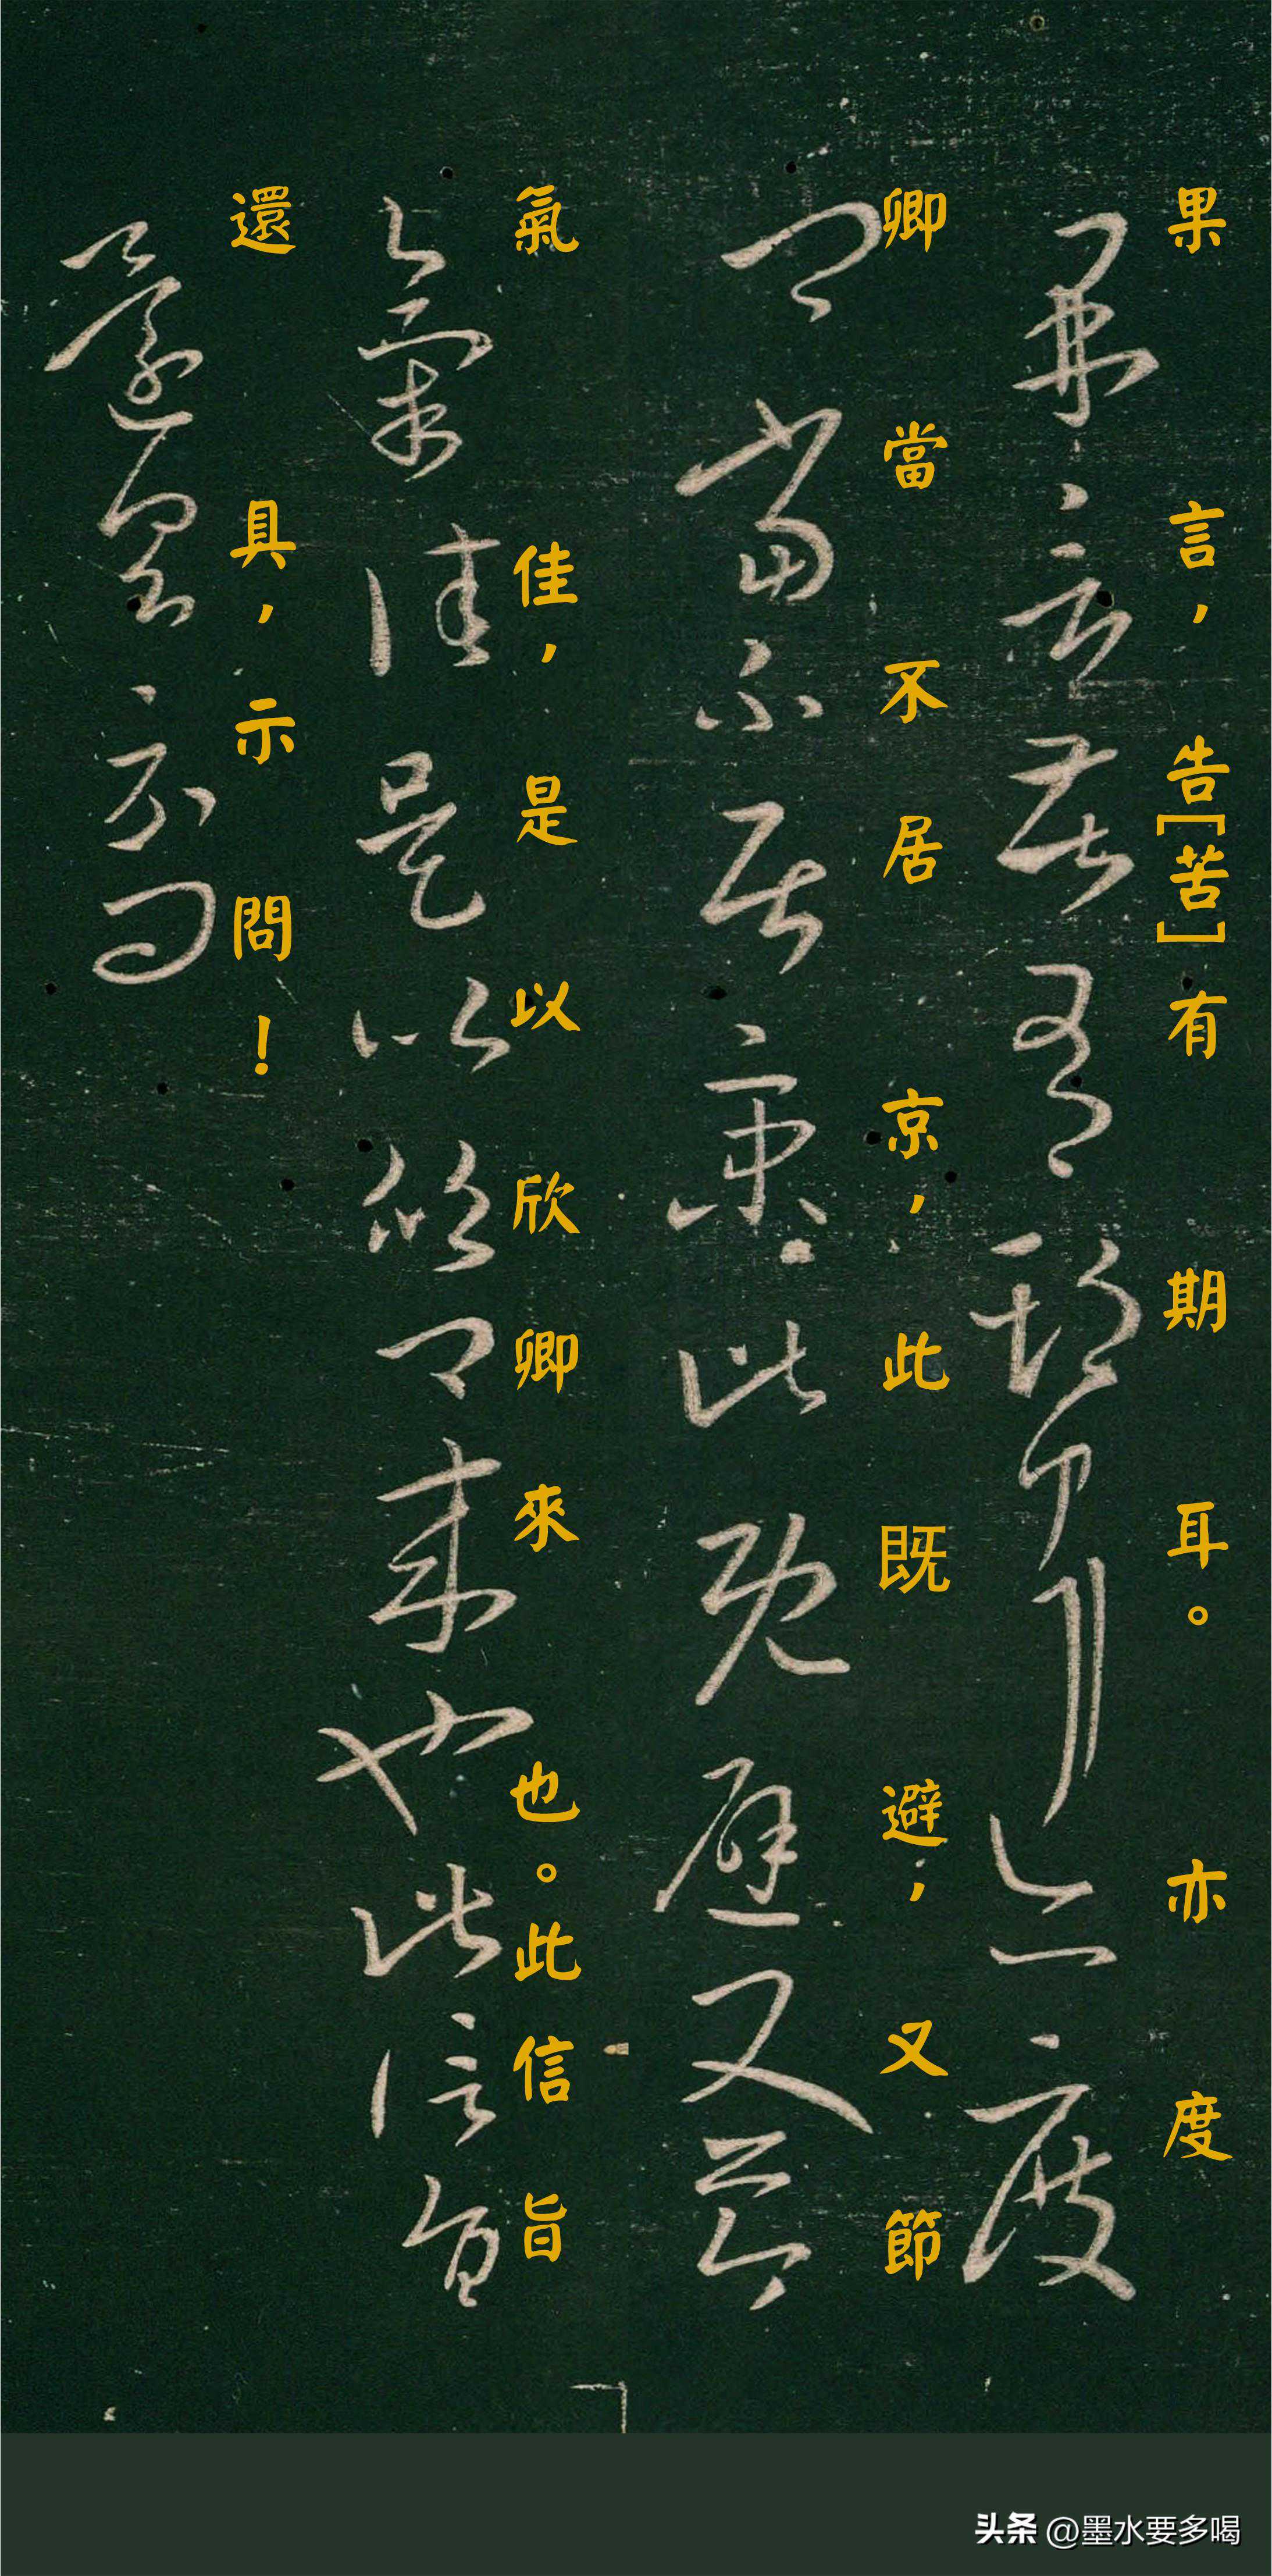 果言，告[苦]有期耳。亦度
卿當不居京，此既避，又節
氣佳，是以欣卿來也。此信旨
還具，示問！
头条 @墨水要多喝